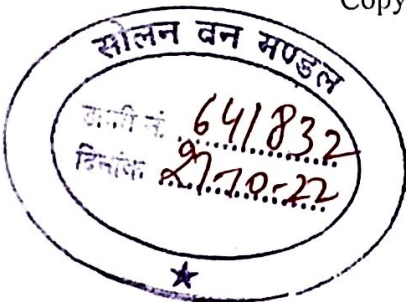 Copy
सोलन वन मण्डल
डायरी नं. 641832
दिनांक 27-10-22